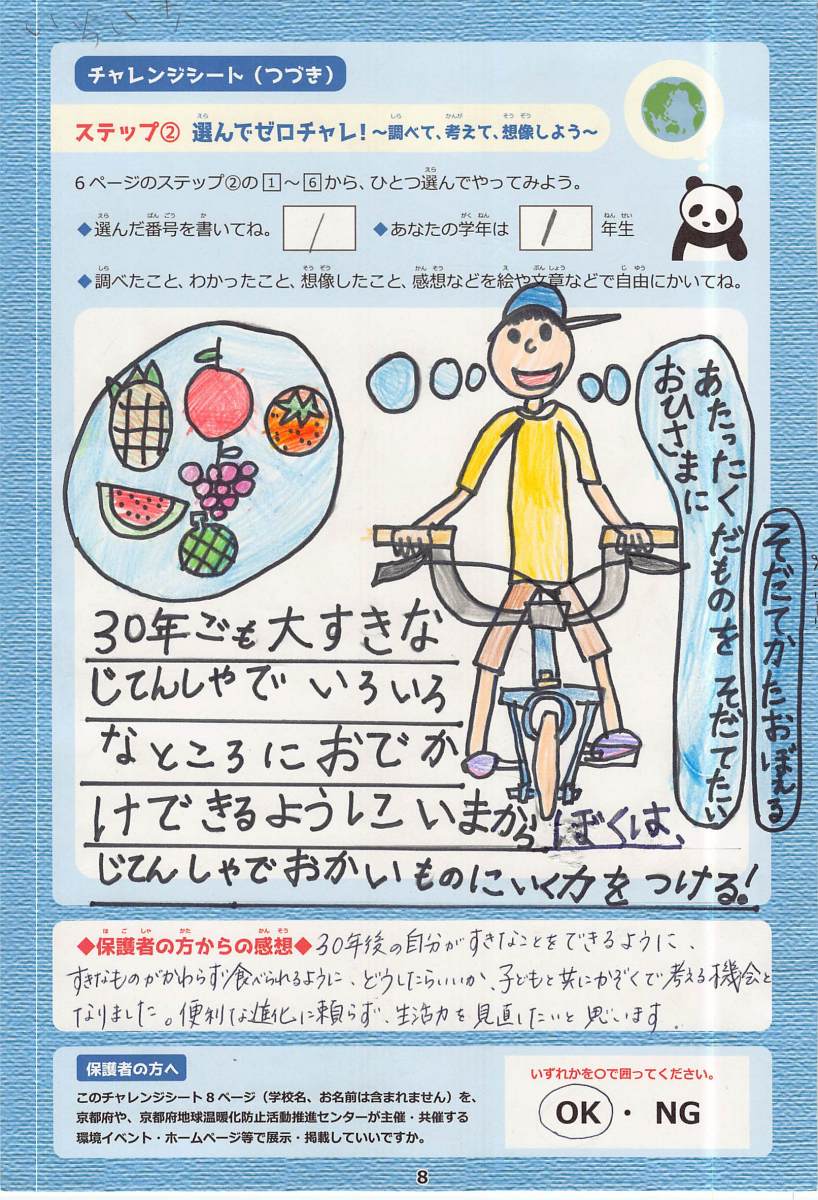 チャレンジシート（つづき）
ステップ② 選んでゼロチャレ！～調べて、考えて、想像しよう～
6ページのステップ②の1～6から、ひとつ選んでやってみよう。
◆選んだ番号を書いてね。 1 ◆あなたの学年は 1 年生
◆調べたこと、わかったこと、想像したこと、感想などを絵や文章などで自由にかいてね。
おひさまに
あたったくだものをそだてたい
そだてかたおぼえる
30年ごも大すきな
じてんしゃでいろいろ
なところにおでか
けできるようにいまからぼくは、
じてんしゃでおかいものにいく力をつける！
◆保護者の方からの感想◆30年後の自分がすきなことをできるように、
すきなものがかわらず食べられるように、どうしたらいいか、子どもと共にかぞくで考える機会と
なりました。便利な進化に頼らず、生活力を見直したいと思います。
保護者の方へ
このチャレンジシート8ページ（学校名、お名前は含まれません）を、
京都府や、京都府地球温暖化防止活動推進センターが主催・共催する
環境イベント・ホームページ等で展示・掲載していいですか。
いずれかを○で囲ってください。
OK・NG
8